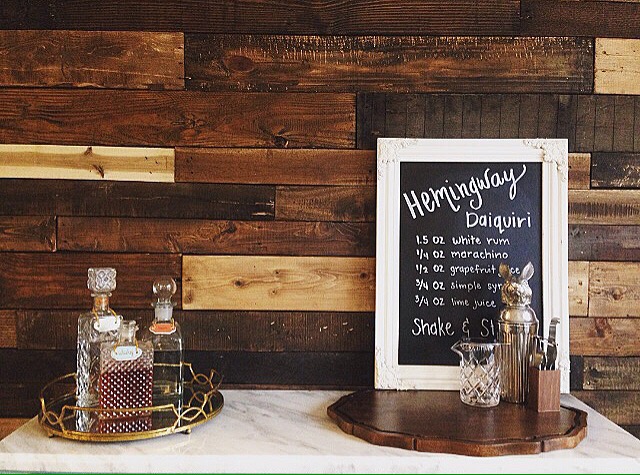 Hemingway
Daiquiri
1.5 oz white rum
1/4 oz marachino
1/2 oz grapefruit
3/4 oz simple
3/4 oz lime juice
Shake &